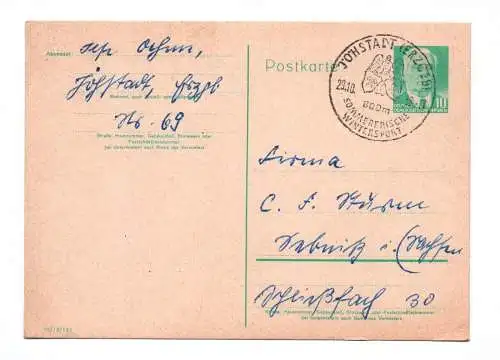 Absender:
Jöhstadt, Erzgb.
Nr. 69
Wohnort, auch Zustell- oder Leitpostamt
Straße, Hausnummer, Gebäudeteil, Stockwerk oder
Postschließfachnummer
bei Untermietern auch Name des Vermieters
Postkarte
JÖHSTADT (ERZGEB)
29.10.
800m
SOMMERFRISCHE
WINTERSPORT
10
Firma
C. F. Sturm
Sebnitz i. (Sachsen
Schließfach 30
Straße, Hausnummer, Gebäudeteil, Stockwerk oder Postschließfachnummer
bei Untermietern auch Name des Vermieters